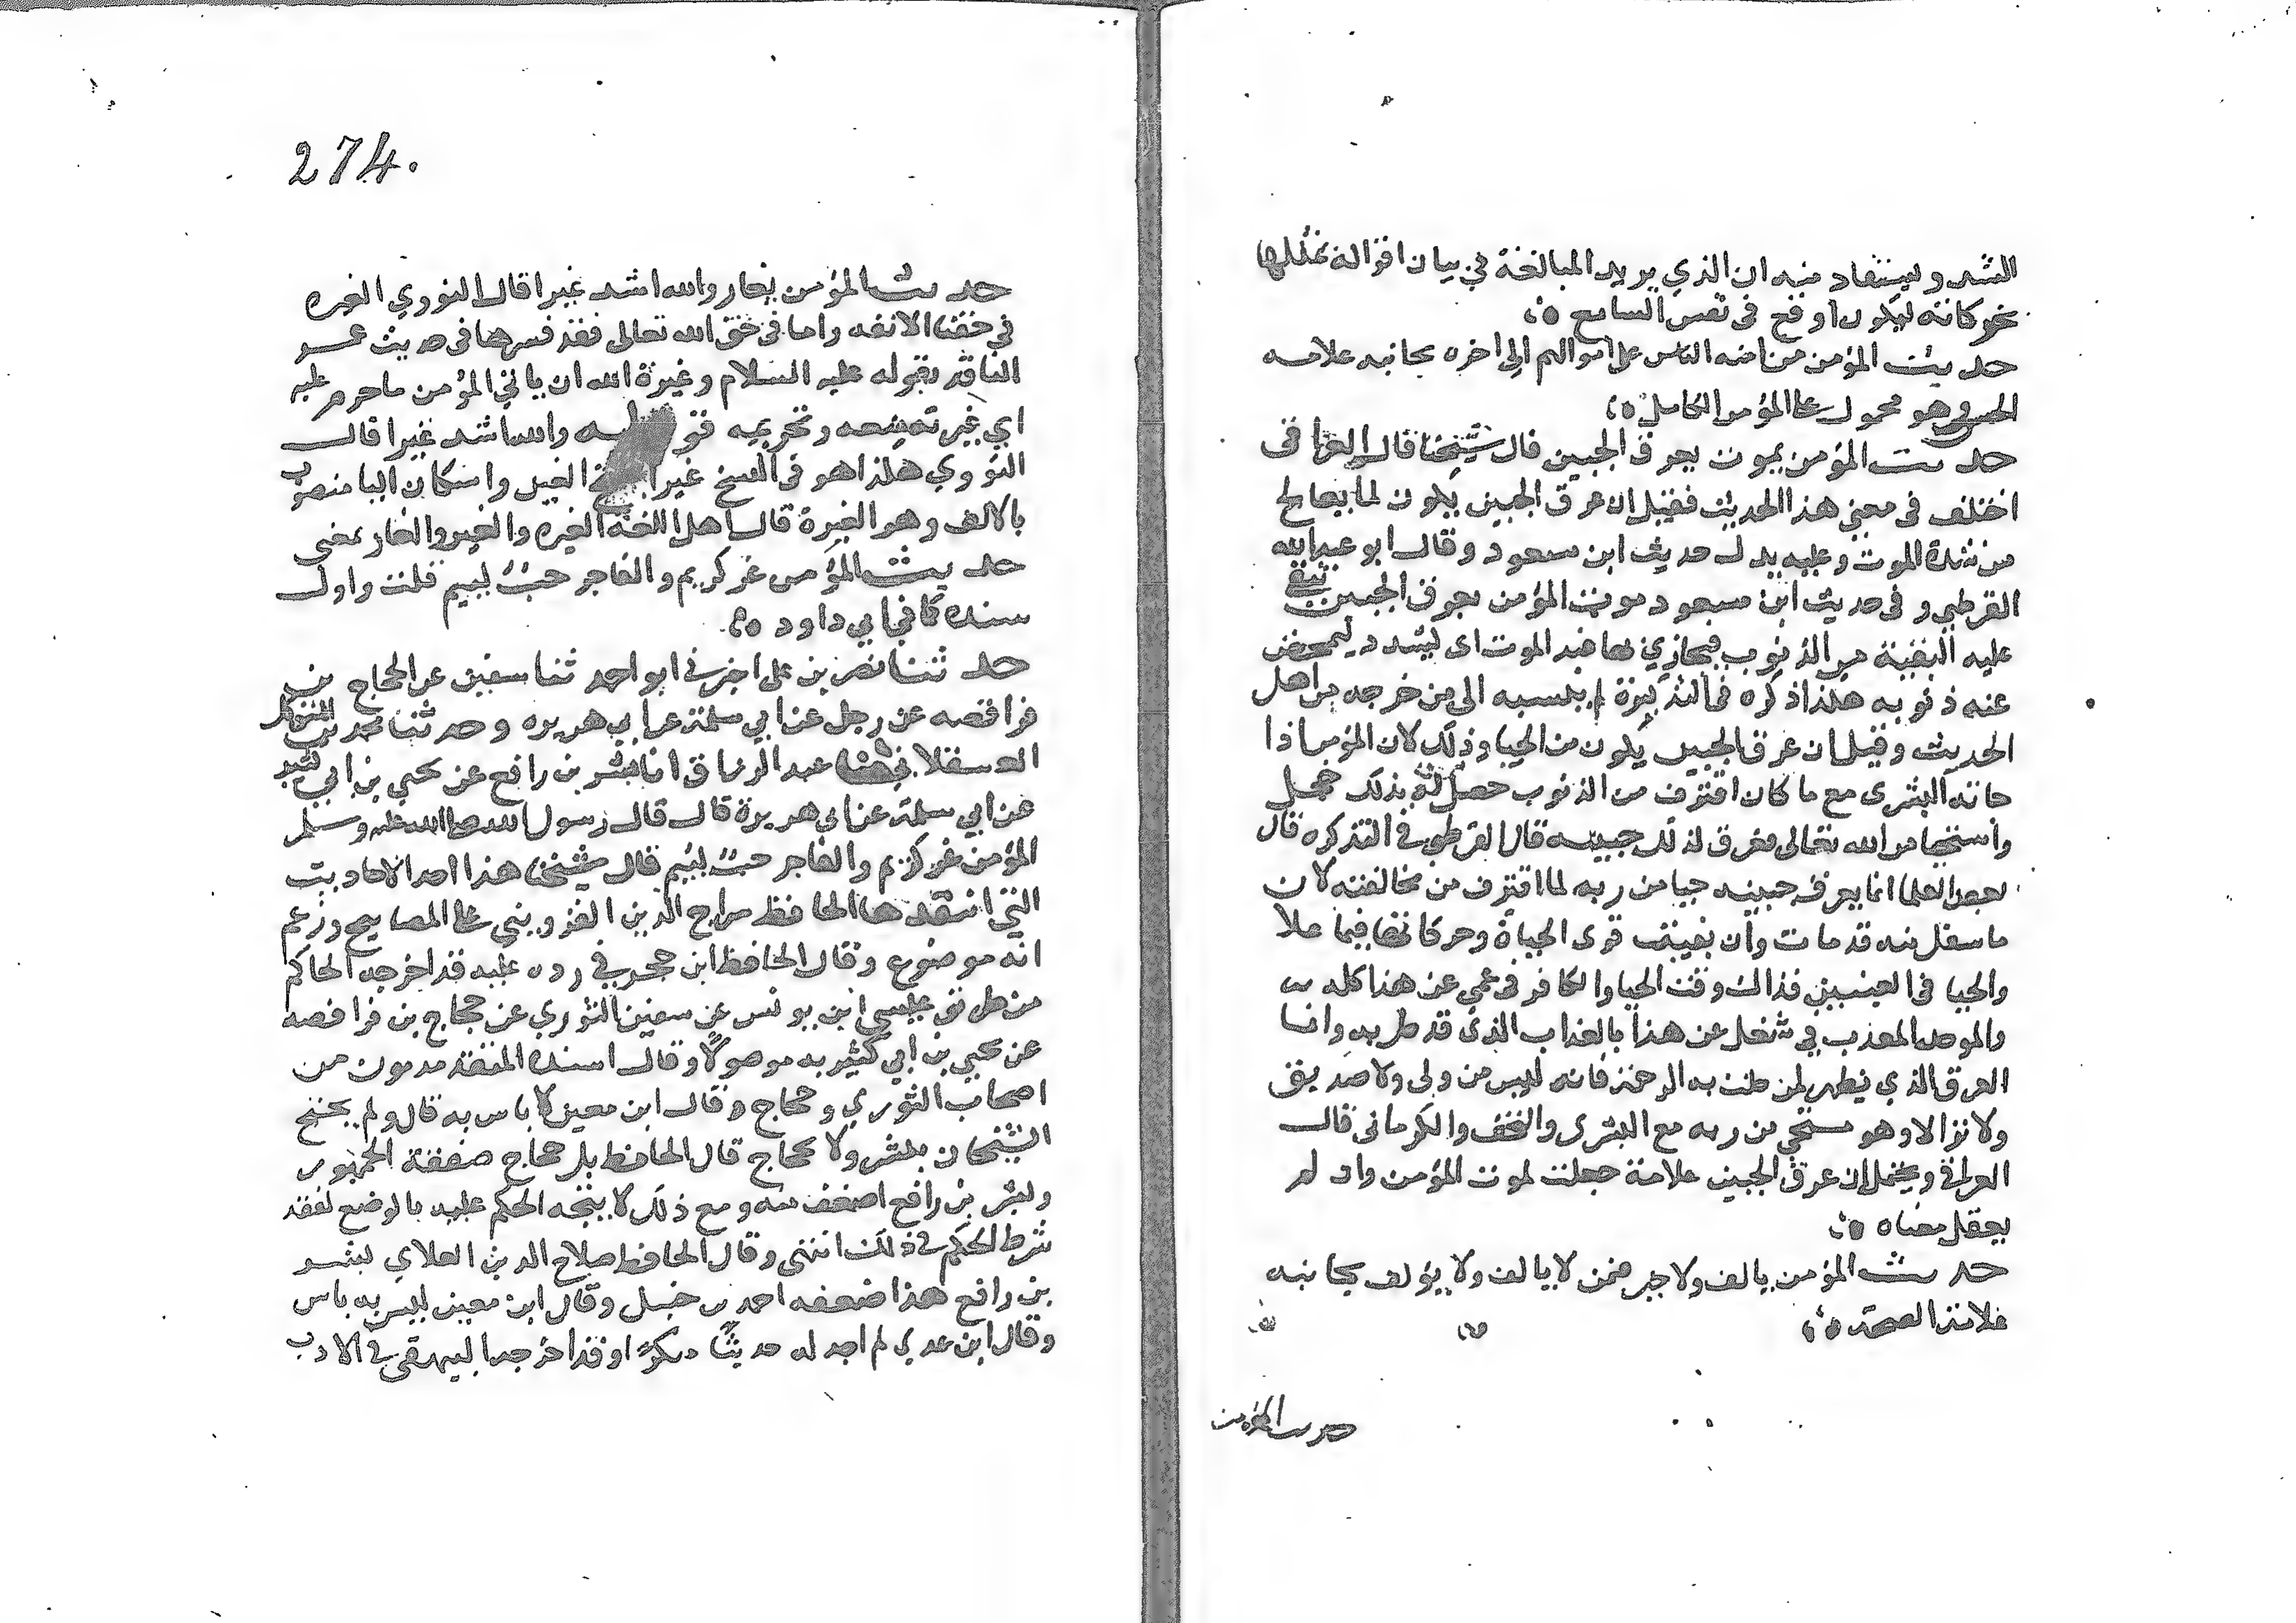 الشد وليستفاد منه ان الذي يريد المبالغة في بيان اقواله يمثلها
بحركاته ليكون اوقع في نفس السامع
حديث المؤمن من امنه الناس على اموالهم الى اخره بجانبه علامه
الحسن وهو محمول على المؤمن الكامل
حديث المؤمن يموت بعرق الجبين قال شيخنا قال العراقي
اختلف في معنى هذا الحديث فقيل ان عرق الجبين يكون لما يعالج
من شدة الموت وعليه يدل حديث ابن مسعود وقال ابو عبد الله
القرطبي وفي حديث ابن مسعود موت المؤمن بعرق الجبين تبقى
عليه البقية من الذنوب فيجازي بها عند الموت اي ليشدد ليمحض
عنه ذنوبه هكذا ذكره في التذكرة لم ينسبه الى من خرجه من اهل
الحديث وقيل ان عرق الجبين يكون من الحيا وذلك لان المؤمن اذا
جاته البشرى مع ما كان اقترف من الذنوب حصل له بذلك خجل
واستحيا من الله تعالى فعرق لذلك جبينه قال القرطبي في التذكره قال
بعض العلما انما يعرق جبينه حيا من ربه لما اقترف من مخالفته لان
ما سفل منه قد مات وان بقيت قوى الحياة وحركاتها فيما علا
والحيا في العينين فذاك وقت الحيا والكافر في عمى عن هذا كله
والموحد المعذب في شغل عن هذا بالعذاب الذي قد حل به وانما
العرق الذي يظهر لمن حلت به الرحمة فانه ليس من ولى ولا صديق
ولا بر الا وهو مستحي من ربه مع البشرى والتحف والكرماني قال
العراقي ويحتمل ان عرق الجبين علامة جعلت لموت المؤمن وان لم
يعقل معناه
حديث المؤمن يالف ولا خير فمن لا يالف ولا يؤلف بجانبه
علامة الصحة
حديث المؤمن
274.
حديث المؤمن يغار والله اشد غيرا قال النووي الغيره
في حقنا الانفه واما في حق الله تعالى فقد فسرها في حديث عمرو
الناقد بقوله عليه السلام وغيرة الله ان ياتي المؤمن ما حرم عليه
اي غير منعه وتحريمه والله اشد غيرا قال
النووي هكذا هو في النسخ غيرا الغين واسكان اليا منصوب
بالالف وهو الغيرة قال اهل اللغة الغيره والغير والغار بمعنى
حديث المؤمن غر كريم والفاجر خب لييم قلت واول
سنده كما في ابي داود
حدثنا نصر بن على اخبرني ابو احمد ثنا سفين عن الحجاج بن
فرافصه عن رجل عن ابي سلمة عن ابي هريره وحدثنا محمد بن المتوكل
العسقلاني ثنا عبد الرزاق انا بشر بن رافع عن يحيى بن ابي كثير
عن ابي سلمة عن ابي هريرة قال قال رسول الله صلى الله عليه وسلم
المؤمن غر كريم والفاجر خب لييم قال شيخنا هذا احد الاحاديث
التي انتقدها الحافظ سراج الدين القزويني على المصابيح وزعم
انه موضوع وقال الحافظ ابن حجر في رده عليه قد اخرجه الحاكم
من طريق عيسى ابن يونس عن سفين الثوري عن حجاج بن فرافصه
عن يحيى بن ابي كثير به موصولا وقال اسنده المتقدمون من
اصحاب الثوري وحجاج وقال ابن معين لا باس به قال ولم يحتج
الشيخان ببشر ولا بحجاج قال الحافظ بل حجاج ضعفه الجمهور
وبشر بن رافع اضعف منه ومع ذلك لا يتجه الحكم عليه بالوضع لفقد
شرط الحكم في ذلك انتهى وقال الحافظ صلاح الدين العلاي بشر
بن رافع هذا ضعفه احمد بن حنبل وقال ابن معين ليس به باس
وقال ابن عدي لم اجد له حديثا منكرا وقد اخرجه البيهقي في الادب